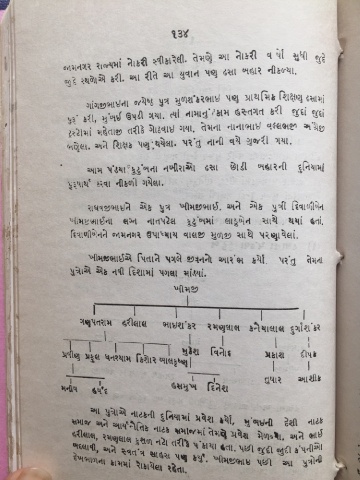 ૧૩૪
જામનગર રાજ્યમાં નોકરી સ્વીકારેલી. તેમણે આ નોકરી વર્ષો સુધી જુદે
જુદે સ્થળોએ કરી. આ રીતે આ યુવાન પણ હસા બહાર નીકળ્યા.
ગાંગજીભાઇના જ્યેષ્ઠ પુત્ર મુળશંકરભાઇ પણ પ્રાથમિક શિક્ષણ હસામાં
પુરૂં કરી, મુંબઇ ઉપડી ગયા. ત્યાં નામાનું કામ હસ્તગત કરી જુદાં જુદાં
ટ્રસ્ટોમાં મહેતાજી તરીકે ગોઠવાઇ ગયા. તેમના નાનાભાઇ વલ્લભજી અંગ્રેજી
ભણેલા. અને શિક્ષક પણ થયેલા. પરંતુ નાની વયે ગુજરી ગયા.
આમ પંડ્યા કુટુંબના નબીરાઓ હસા છોડી બહારની દુનિયામાં
પુરૂષાર્થ કરવા નીકળી ગયેલા.
રાઘવજીભાઇને એક પુત્ર ખીમજીભાઇ. અને એક પુત્રી દિવાળીબેન
ખીમજીભાઇના લગ્ન નાતપટેલ કુટુંબમાં લાડુબેન સાથે થયાં હતાં.
દિવાળીબેનને જામનગર ઉપાધ્યાય વાલજી મુળજી સાથે પરણાવેલાં.
ખીમજીભાઇએ પિતાને પગલે જીવનનો આરંભ કર્યો. પરંતુ તેમના
પુત્રોએ એક નવી દિશામાં પગલાં માંડ્યાં.
ખીમજી
ગણપતરામ હરીલાલ ભાઇશંકર રમણલાલ કનૈયાલાલ દુર્ગાશંકર
પ્રવીણ પ્રફુલ ઘનશ્યામ કિશોર બાલકૃષ્ણ મુકેશ વિનોદ પ્રકાશ દીપક
મનીષ હર્ષદ હસમુખ દિનેશ તુષાર આશીક
આ પુત્રોએ નાટકની દુનિયામાં પ્રવેશ કર્યો, મુંબઇની દેશી નાટક
સમાજ અને આર્યનૈતિક નાટક સમાજમાં તેમણે પ્રવેશ મેળવ્યો. અને ભાઇ
હરીલાલ, રમણલાલ કુશળ નટો તરીકે પંકાયા હતા. પછી જુદી જુદી કંપનીઓ
બદલાવી, અને સ્વતંત્ર સાહસ પણ કર્યું. ખીમજીભાઇ પછી આ પુત્રોની
દેખભાળના કામમાં રોકાયેલા રહેતા.